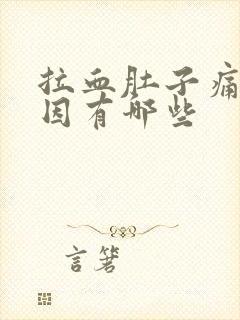 拉血肚子痛
因有哪些
言箸